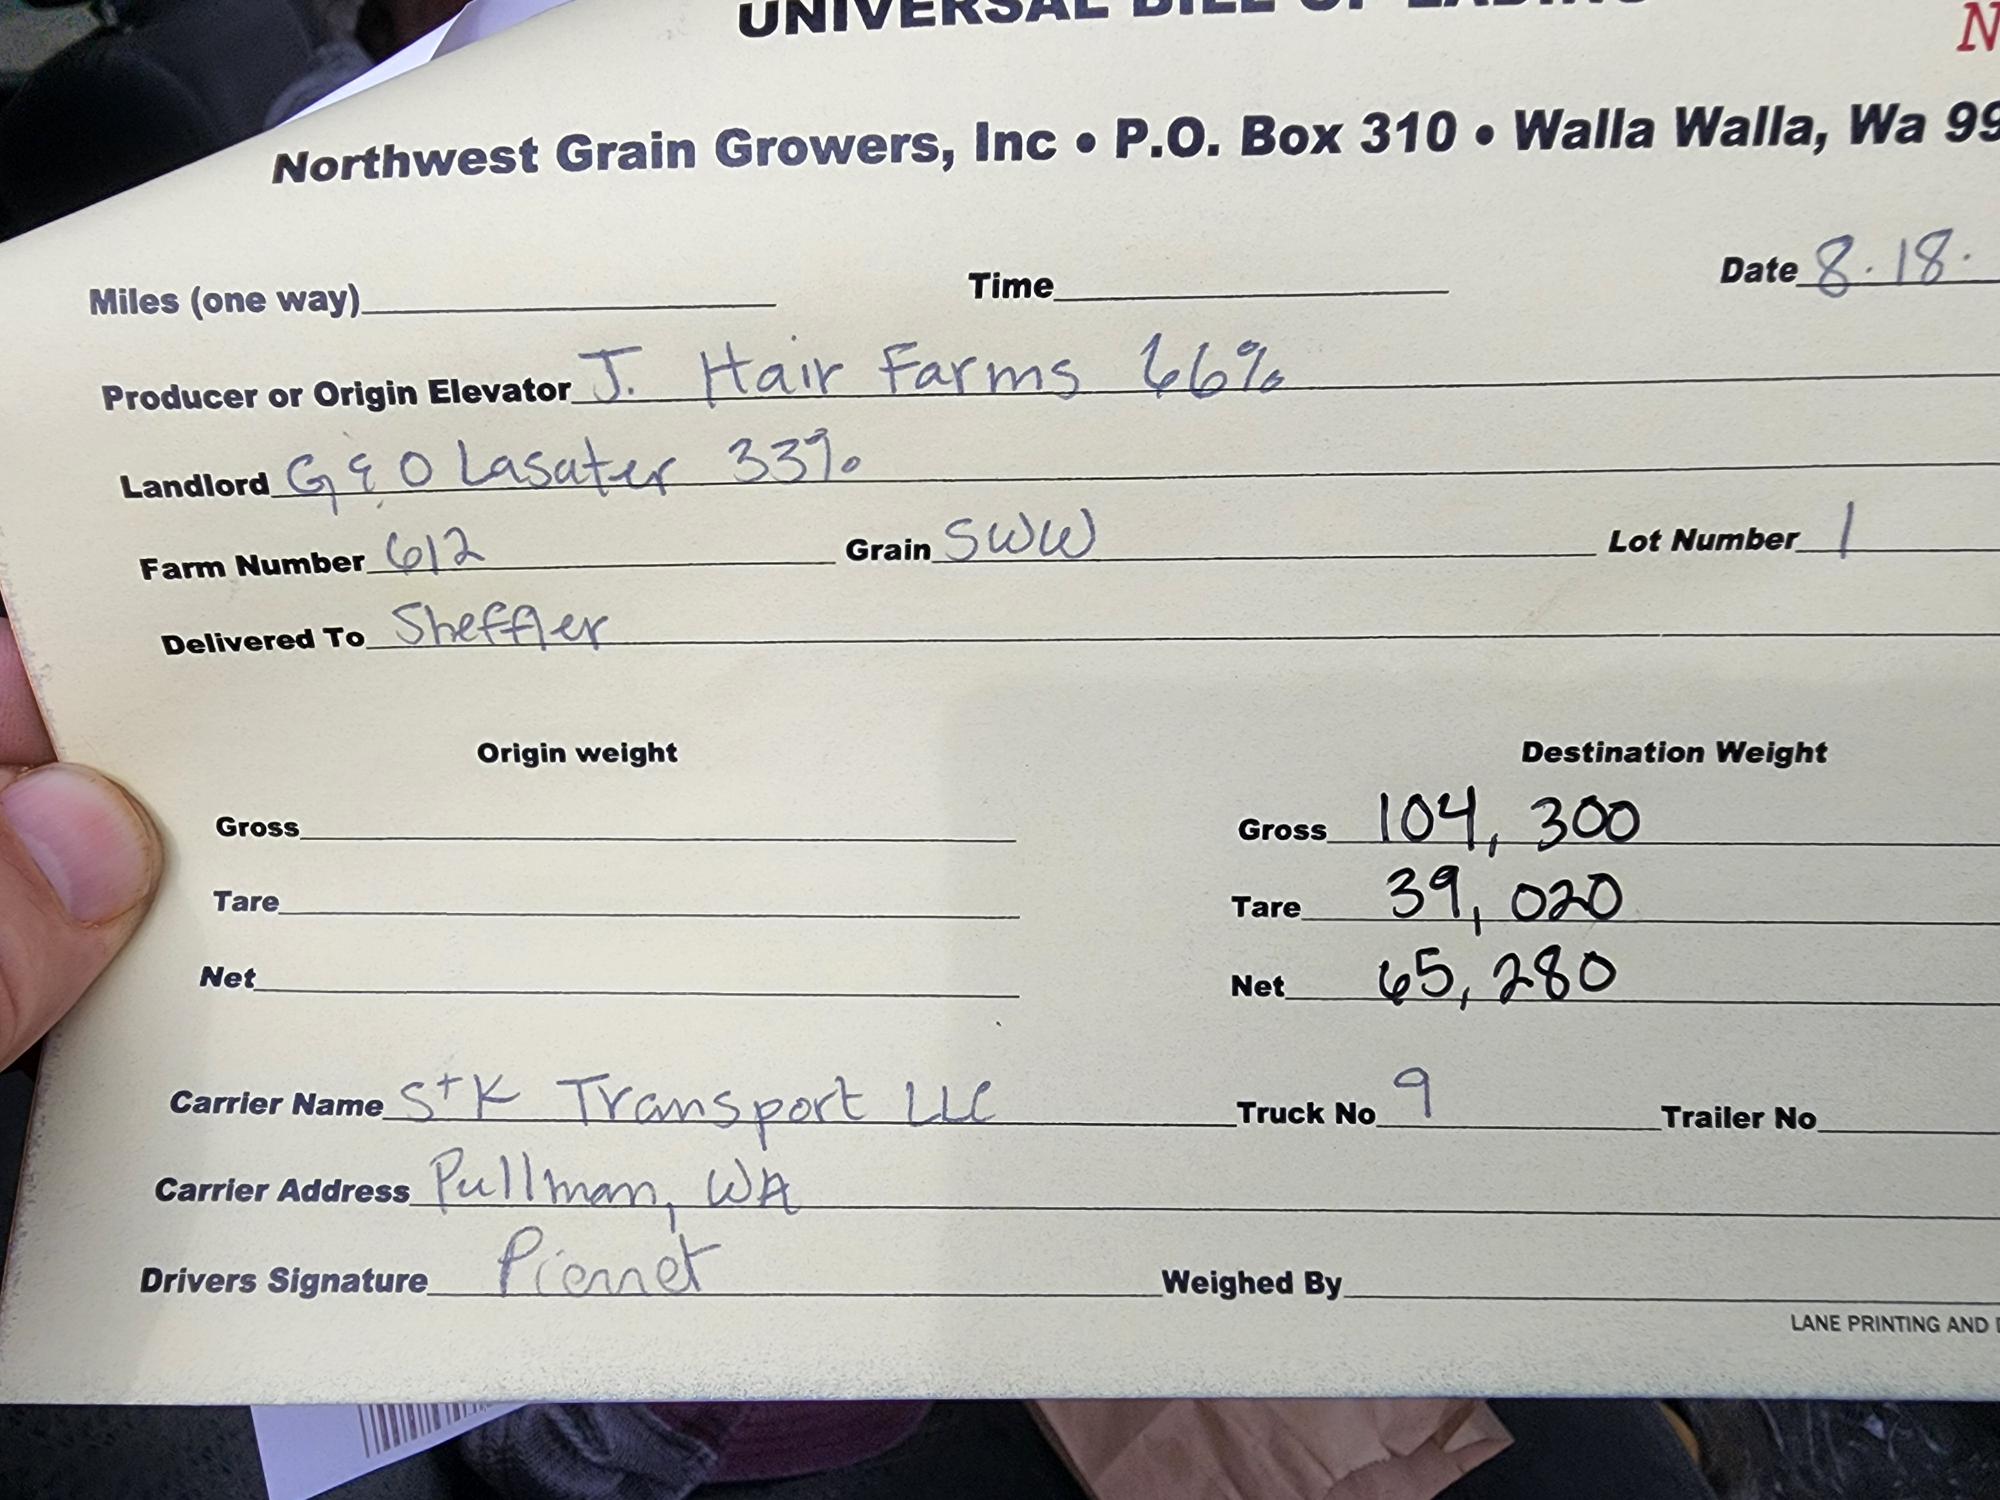 UNIVERSAL BILL OF LADING
N
Northwest Grain Growers, Inc • P.O. Box 310 • Walla Walla, Wa 99
Miles (one way) Time Date 8.18.
Producer or Origin Elevator J. Hair Farms 66%
Landlord G & O Lasater 33%
Farm Number 612 Grain SWW Lot Number 1
Delivered To Sheffler
Origin weight Destination Weight
Gross Gross 104,300
Tare Tare 39,020
Net Net 65,280
Carrier Name S+K Transport LLC Truck No 9 Trailer No
Carrier Address Pullman, WA
Drivers Signature Weighed By
LANE PRINTING AND